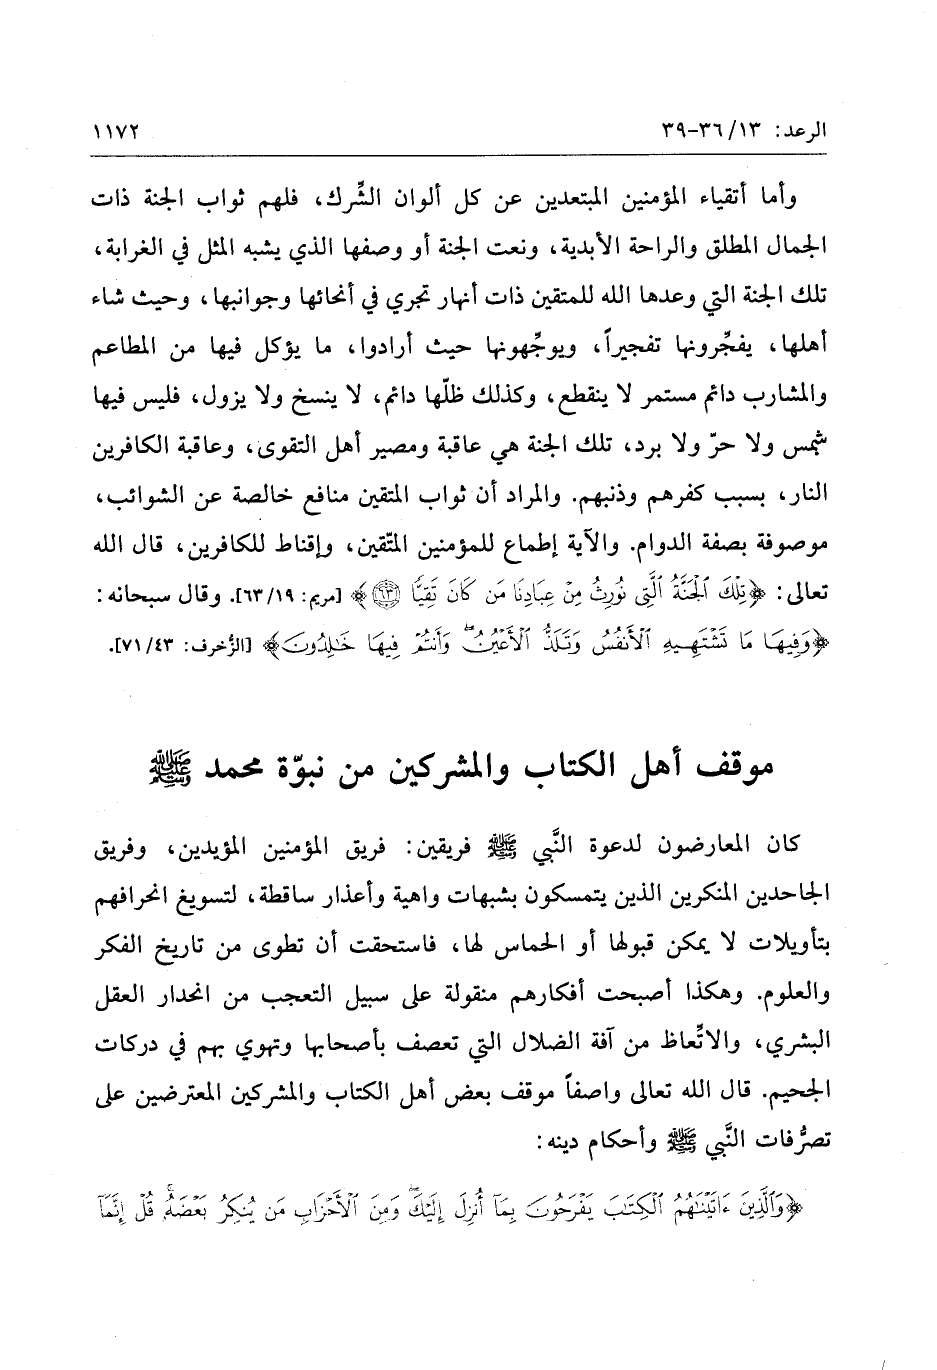 الرعد: ١٣/ ٣٦-٣٩ ١١٧٢
وأما أتقياء المؤمنين المبتعدين عن كل ألوان الشِّرك، فلهم ثواب الجنة ذات
الجمال المطلق والراحة الأبدية، ونعت الجنة أو وصفها الذي يشبه المثل في الغرابة،
تلك الجنة التي وعدها الله للمتقين ذات أنهار تجري في أنحائها وجوانبها، وحيث شاء
أهلها، يفجِّرونها تفجيراً، ويوجِّهونها حيث أرادوا، ما يؤكل فيها من المطاعم
والمشارب دائم مستمر لا ينقطع، وكذلك ظلّها دائم، لا ينسخ ولا يزول، فليس فيها
شمس ولا حرّ ولا برد، تلك الجنة هي عاقبة ومصير أهل التقوى، وعاقبة الكافرين
النار، بسبب كفرهم وذنبهم. والمراد أن ثواب المتقين منافع خالصة عن الشوائب،
موصوفة بصفة الدوام. والآية إطماع للمؤمنين المتّقين، وإقناط للكافرين، قال الله
تعالى: ﴿تِلْكَ ٱلْجَنَّةُ ٱلَّتِى نُورِثُ مِنْ عِبَادِنَا مَن كَانَ تَقِيًّا ٦٣﴾ [مريم: ١٩/ ٦٣]. وقال سبحانه:
﴿وَفِيهَا مَا تَشْتَهِيهِ ٱلْأَنفُسُ وَتَلَذُّ ٱلْأَعْيُنُ ۖ وَأَنتُمْ فِيهَا خَٰلِدُونَ﴾ [الزُّخرف: ٤٣/ ٧١].
موقف أهل الكتاب والمشركين من نبوّة محمد ﷺ
كان المعارضون لدعوة النَّبي ﷺ فريقين: فريق المؤمنين المؤيدين، وفريق
الجاحدين المنكرين الذين يتمسكون بشبهات واهية وأعذار ساقطة، لتسويغ انحرافهم
بتأويلات لا يمكن قبولها أو الحماس لها، فاستحقت أن تطوى من تاريخ الفكر
والعلوم. وهكذا أصبحت أفكارهم منقولة على سبيل التعجب من انحدار العقل
البشري، والاتِّعاظ من آفة الضلال التي تعصف بأصحابها وتهوي بهم في دركات
الجحيم. قال الله تعالى واصفاً موقف بعض أهل الكتاب والمشركين المعترضين على
تصرُّفات النَّبي ﷺ وأحكام دينه:
﴿وَٱلَّذِينَ ءَاتَيْنَٰهُمُ ٱلْكِتَٰبَ يَفْرَحُونَ بِمَآ أُنزِلَ إِلَيْكَ ۖ وَمِنَ ٱلْأَحْزَابِ مَن يُنكِرُ بَعْضَهُۥ ۚ قُلْ إِنَّمَآ